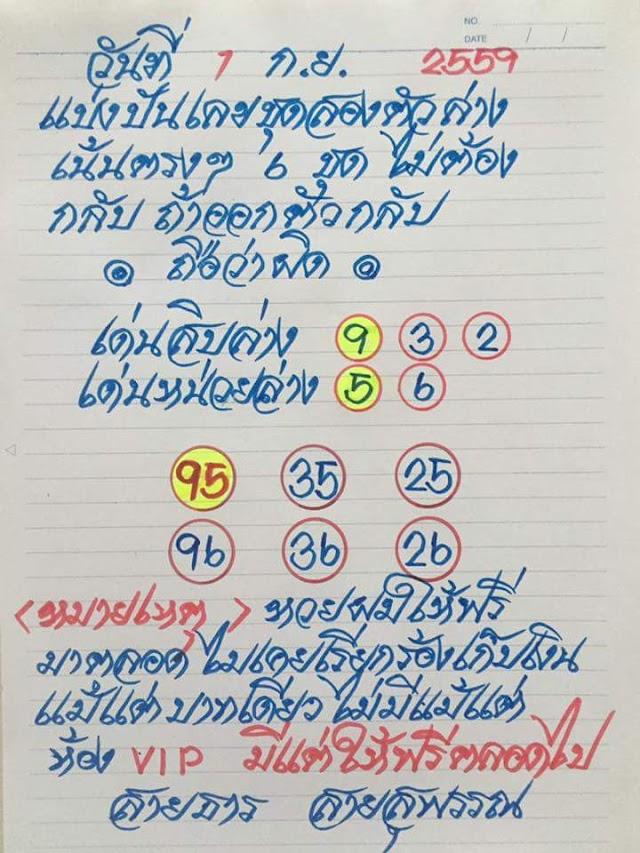 NO.
DATE / /
วันที่ 1 ก.ย. 2559
แบ่งปันเลขชุดสองตัวล่าง
เน้นตรงๆ 6 ชุด ไม่ต้อง
กลับ ถ้าออกตัวกลับ
ถือว่าผิด
เด่นสิบล่าง 9 3 2
เด่นหน่วยล่าง 5 6
95 35 25
96 36 26
<หมายเหตุ> หวยผมให้ฟรี
มาตลอด ไม่เคยเรียกร้องเก็บเงิน
แม้แต่บาทเดียว ไม่มีแม้แต่
ห้อง VIP มีแต่ให้ฟรีตลอดไป
สายธาร สายสุพรรณ